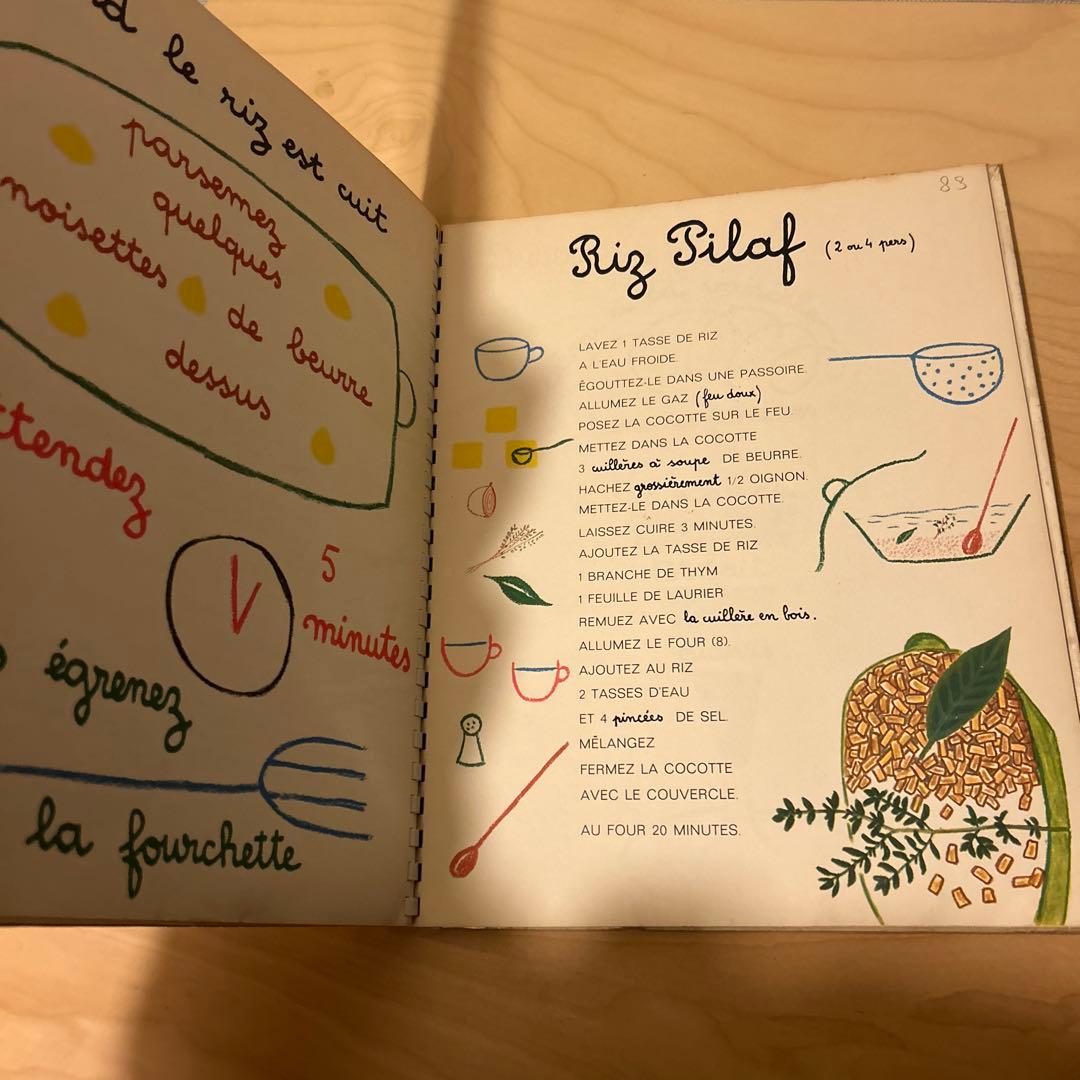 le riz est cuit
parsemez
quelques
noisettes de beurre
dessus
5
minutes
égrenez
la fourchette
83
Riz Pilaf (2 ou 4 pers)
LAVEZ 1 TASSE DE RIZ
A L'EAU FROIDE.
ÉGOUTTEZ-LE DANS UNE PASSOIRE.
ALLUMEZ LE GAZ (feu doux)
POSEZ LA COCOTTE SUR LE FEU.
METTEZ DANS LA COCOTTE
3 cuillères à soupe DE BEURRE.
HACHEZ grossièrement 1/2 OIGNON.
METTEZ-LE DANS LA COCOTTE.
LAISSEZ CUIRE 3 MINUTES.
AJOUTEZ LA TASSE DE RIZ
1 BRANCHE DE THYM
1 FEUILLE DE LAURIER
REMUEZ AVEC la cuillère en bois.
ALLUMEZ LE FOUR (8).
AJOUTEZ AU RIZ
2 TASSES D'EAU
ET 4 pincées DE SEL.
MÉLANGEZ
FERMEZ LA COCOTTE
AVEC LE COUVERCLE.
AU FOUR 20 MINUTES.